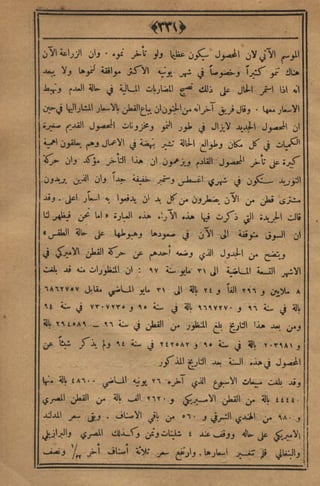 ﴿٣٣١﴾
الموسم الآتي لان المحصول سيكون عظيما ولو تأخر نموه . وان الزراعة الآن
هناك تنمو كثيراً وخصوصاً في شهر يونيه الاكثر موافقة لنموها ولا يبعد
انه اذا استمر الحال على ذلك تصبح المضاربات المالية في حالة العدم وتهبط
الاسعار معها . وقال فريق آخر انه من الجنون ان يباع القطن بالاسعار المشار اليها في حين
ان المحصول الجديد لايزال في طور النمو ومخزونات المحصول القديم صغيرة
الكميات في كل مكان وطوالع الحال تشير بنهضة في الاعمال وهم يعلقون اهمية
كبيرة على تأخر المحصول القادم ويزعمون ان هذا التأخر مؤكد وان حركة
التوريد ستكون في شهري اغسطس وستمبر خفيفة جداً وان الذين يريدون
مشترى قطن من الآن يضطرون من كل بد ان يدفعوا به اسعار اعلى . وقد
قالت الجريدة التي ذكرت فيها هذه الآراء هذه العبارة « اما نحن فيظهر لنا
ان السوق متوقفة الى الآن في صعودها وهبوطها على حالة الطقس »
ويتضح من الجدول الذي وضعه أحدهم عن حركة القطن الاميركي في
الاشهر التسعة الماضية الى ٣١ مايو سنة ٩٧ : ان المنظورات منه قد بلغت
٨ ملايين و ٢٩٦ الفاً و ٢٤ بالة الى ٣١ مايو الماضي مقابل ٦٨٦٢٧٥٧
بالة في سنة ٩٦ و ٩٦٩٧٢٧٠ بالة في سنة ٩٥ و ٧٣٠٧٢٣٥ في سنة ٩٤
ومن بعد هذا التاريخ بلغ المنظور من القطن في سنة ٩٦ — ٢٩٤٥٨٩ بالة
و ٢٠٣٩٨١ بالة في سنة ٩٥ و ٢٤٢٥٨٢ في سنة ٩٤ ولم يذكر شيئاً عن
المحصول في هذه السنة بعد التاريخ المذكور
وقد بلغت مبيعات الاسبوع الذي آخره ٢٦ يونيه الماضي ٤٨٦٠٠ بالة منها
٤٤٤٠٠ بالة من القطن الاميركي و ٢٦٢٠ الف بالة من القطن المصري
و ٩٨٠ من الهندي الشرقي و ٥٦٠ من باقي الاصناف . وبقي سعر المدلند
الاميركي على حاله ووقف عند ٤ شلينات وثمن وكذلك المصري والبرازيلي
والبنغالي فلم تتغير اسعارها . وارتفع سعر ثلاثة أصناف أخر ونصف